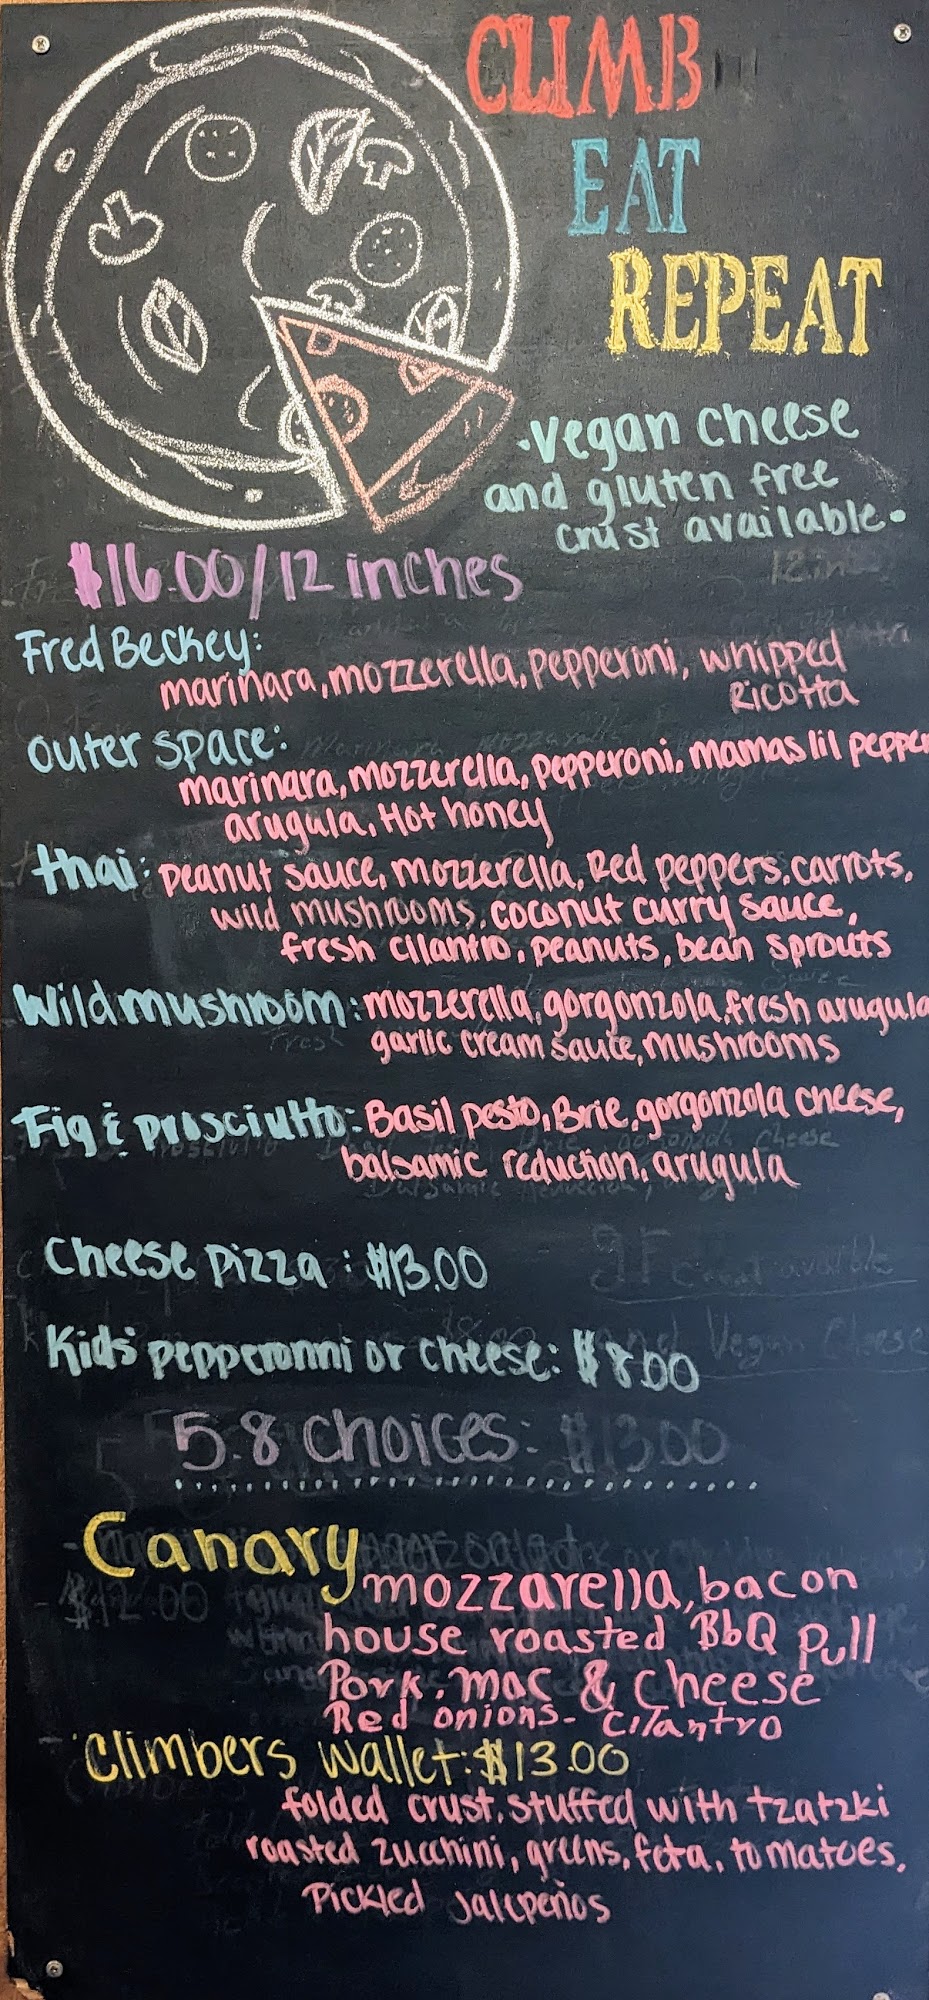 CLIMB
EAT
REPEAT
·vegan cheese
and gluten free
crust available·
$16.00/12 inches
Fred Beckey:
marinara, mozzerella, pepperoni, whipped
Ricotta
outer space:
marinara, mozzerella, pepperoni, mamas lil pepper
arugula, Hot honey
thai: peanut sauce, mozzerella, Red peppers, carrots,
wild mushrooms, coconut curry sauce,
fresh cilantro, peanuts, bean sprouts
Wild mushroom: mozzerella, gorgonzola, fresh arugula
garlic cream sauce, mushrooms
Fig & prosciutto: Basil pesto, Brie, gorgonzola cheese,
balsamic reduction, arugula
Cheese Pizza : $13.00
Kids' pepperonni or cheese: $8.00
5.8 choices: $13.00
Canary
mozzarella, bacon
house roasted BbQ Pull
Pork, mac & cheese
Red onions- cilantro
Climbers wallet: $13.00
folded crust, stuffed with tzatzki
roasted zucchini, greens, feta, tomatoes,
Pickled Jalepeños